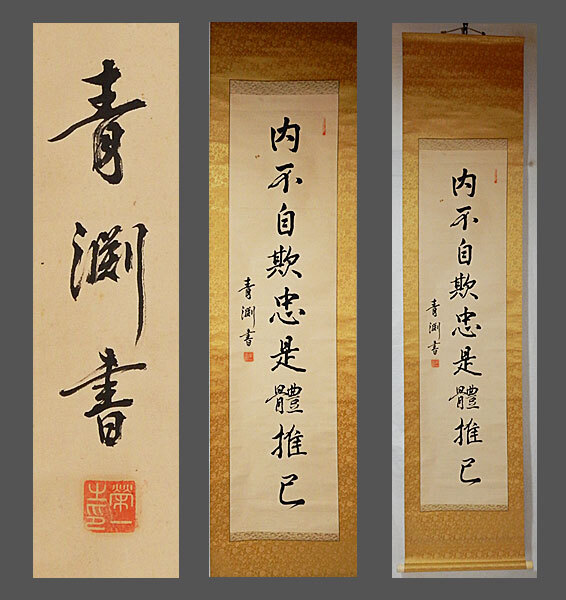 青
淵
書
内不自欺忠是體推己
青淵書
内不自欺忠是體推己
青淵書